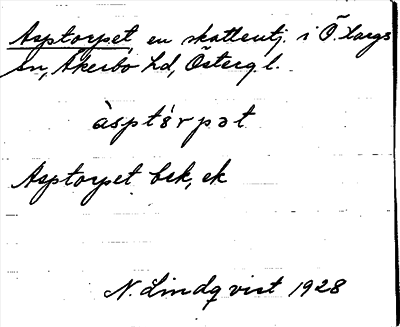 Asptorpet, en skattentj. i Ö. Skargs
sn, Åkerbo hd, Österg. l.
àsptórpət
Asptorpet bek, ek
N. Lindqvist 1928